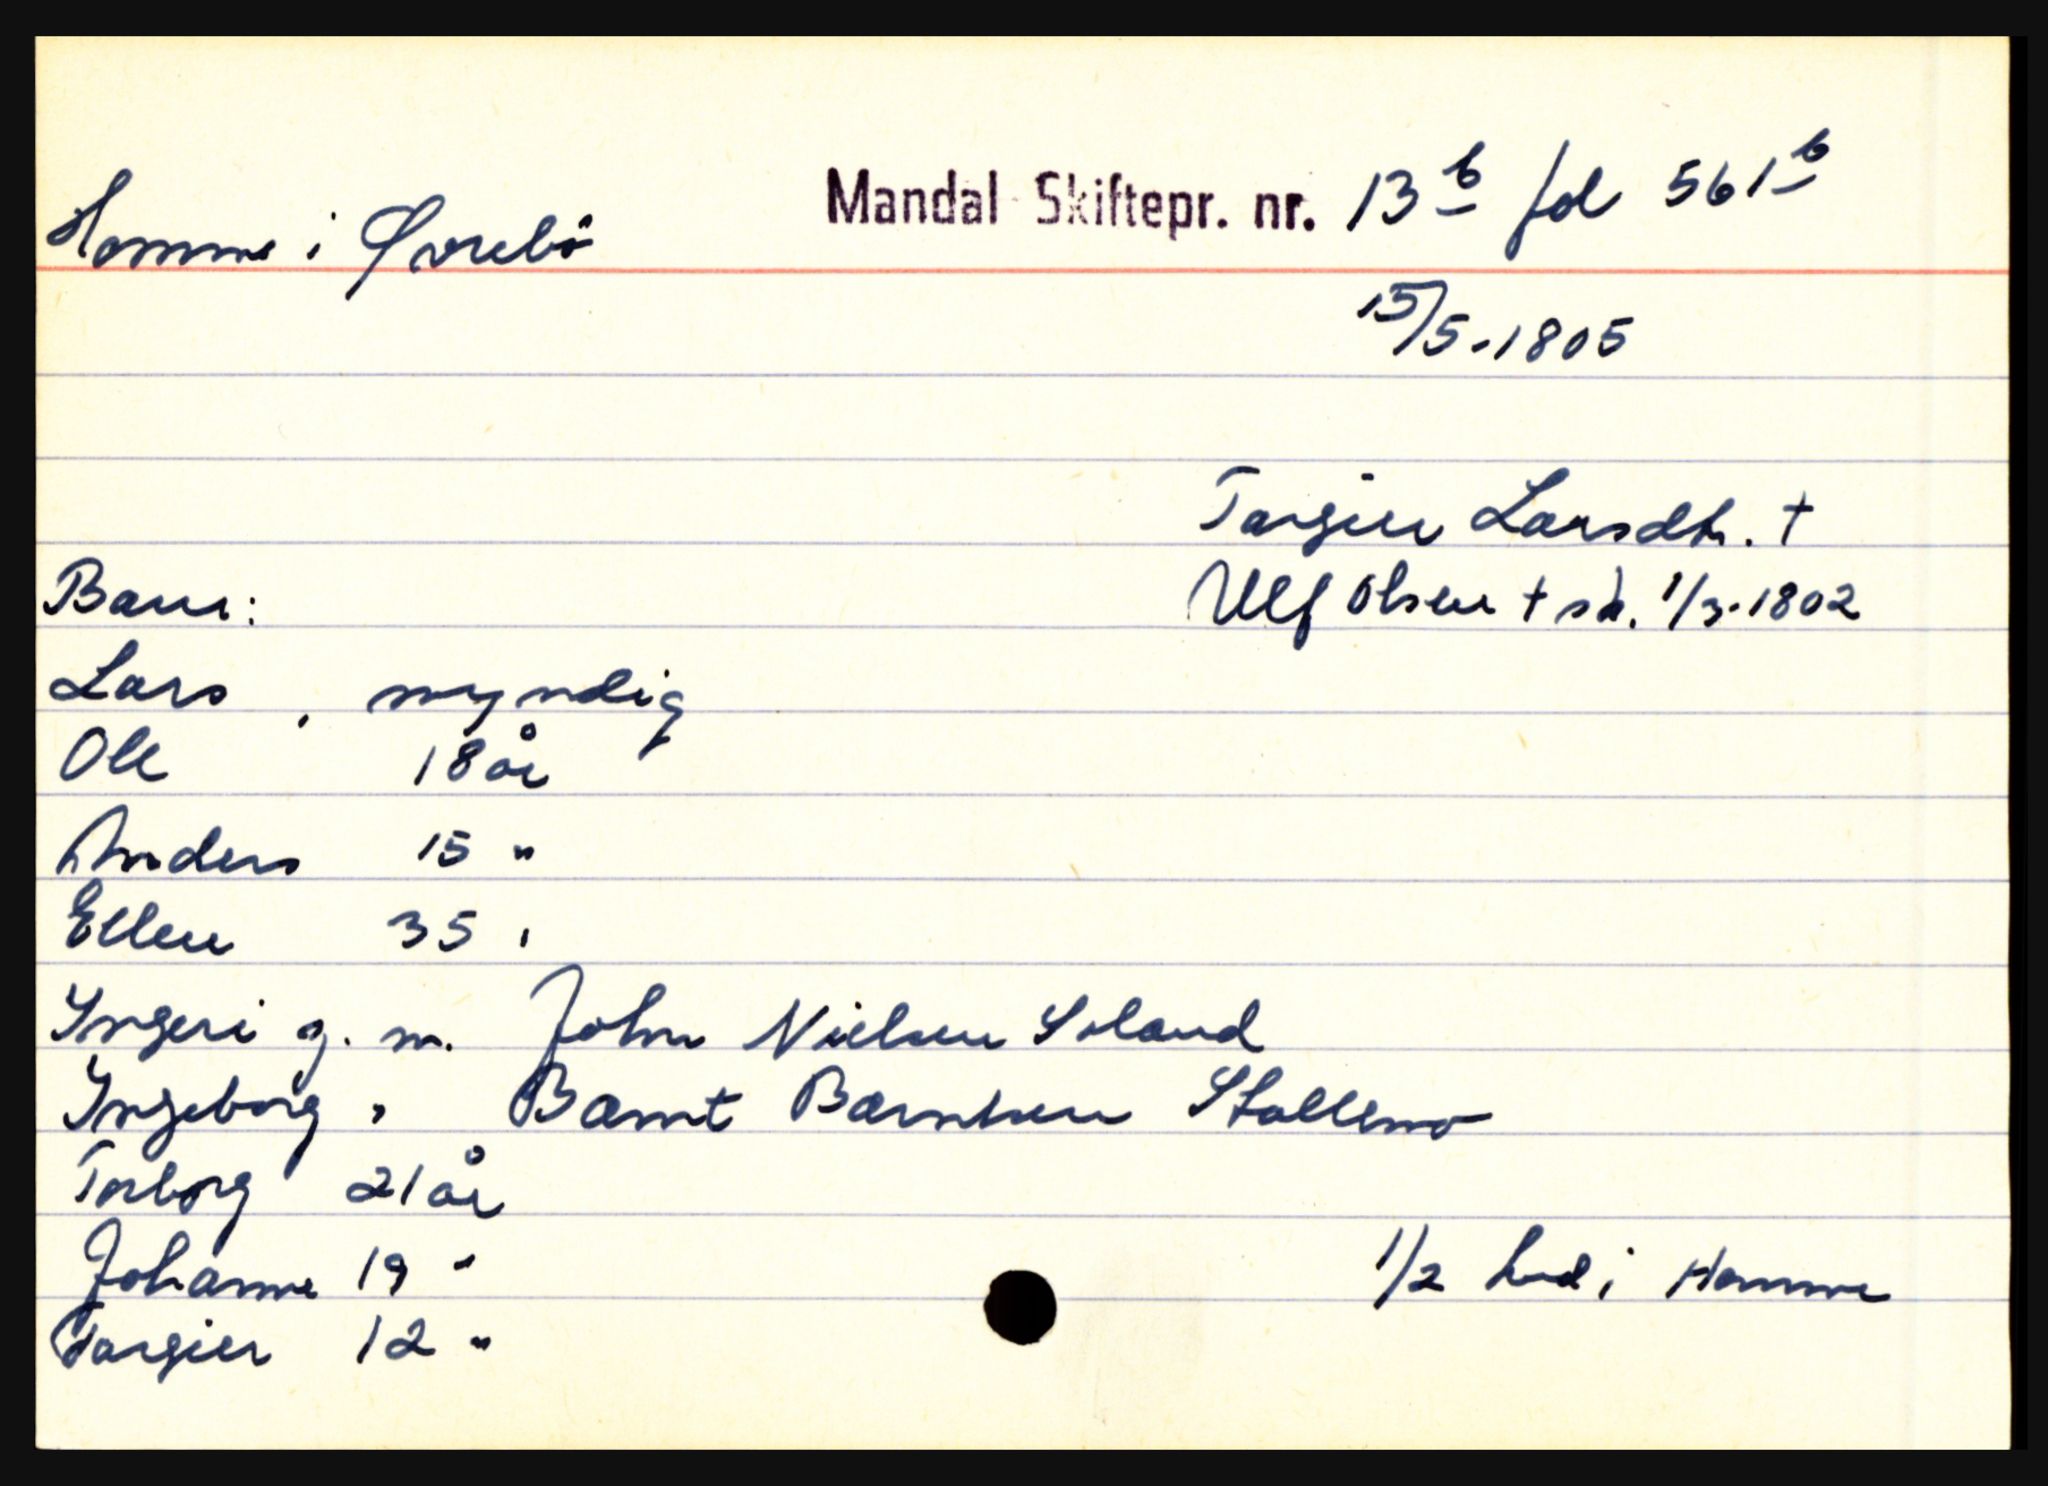 Homme i Øvrebø
Mandal Skiftepr. nr. 13 b fol 561 b
15/5-1805
Torgier Larsdtr. †
Barn:
Ulf Olsen † sk. 1/3-1802
Lars, myndig
Ole 18 år
Anders 15 "
Ellen 35 "
Yngeri g. m. John Nielsen Soland
Yngeborg " Bærnt Bærntsen Stallemo
Torborg 21 år
Johanne 19 "
1/2 hud i Homme
Torgier 12 "